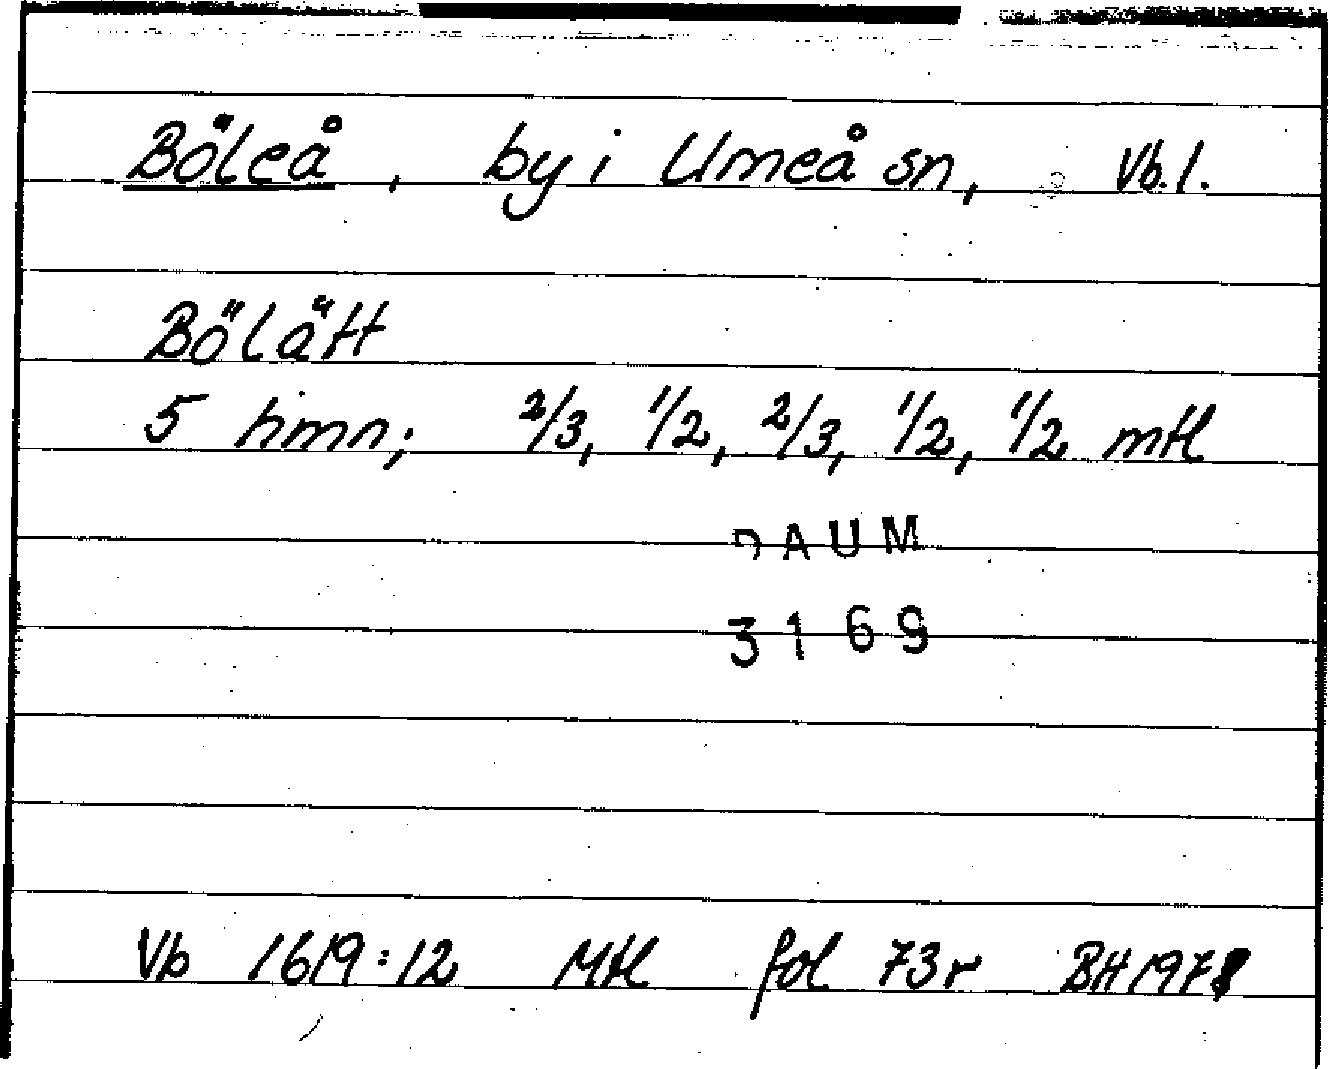 Böleå, by i Umeå sn, Vb.l.
Bölätt
5 hmn; 2/3, 1/2, 2/3, 1/2, 1/2 mtl
DAUM
3169
Vb 1619:12 Mtl fol 73r BH 1978